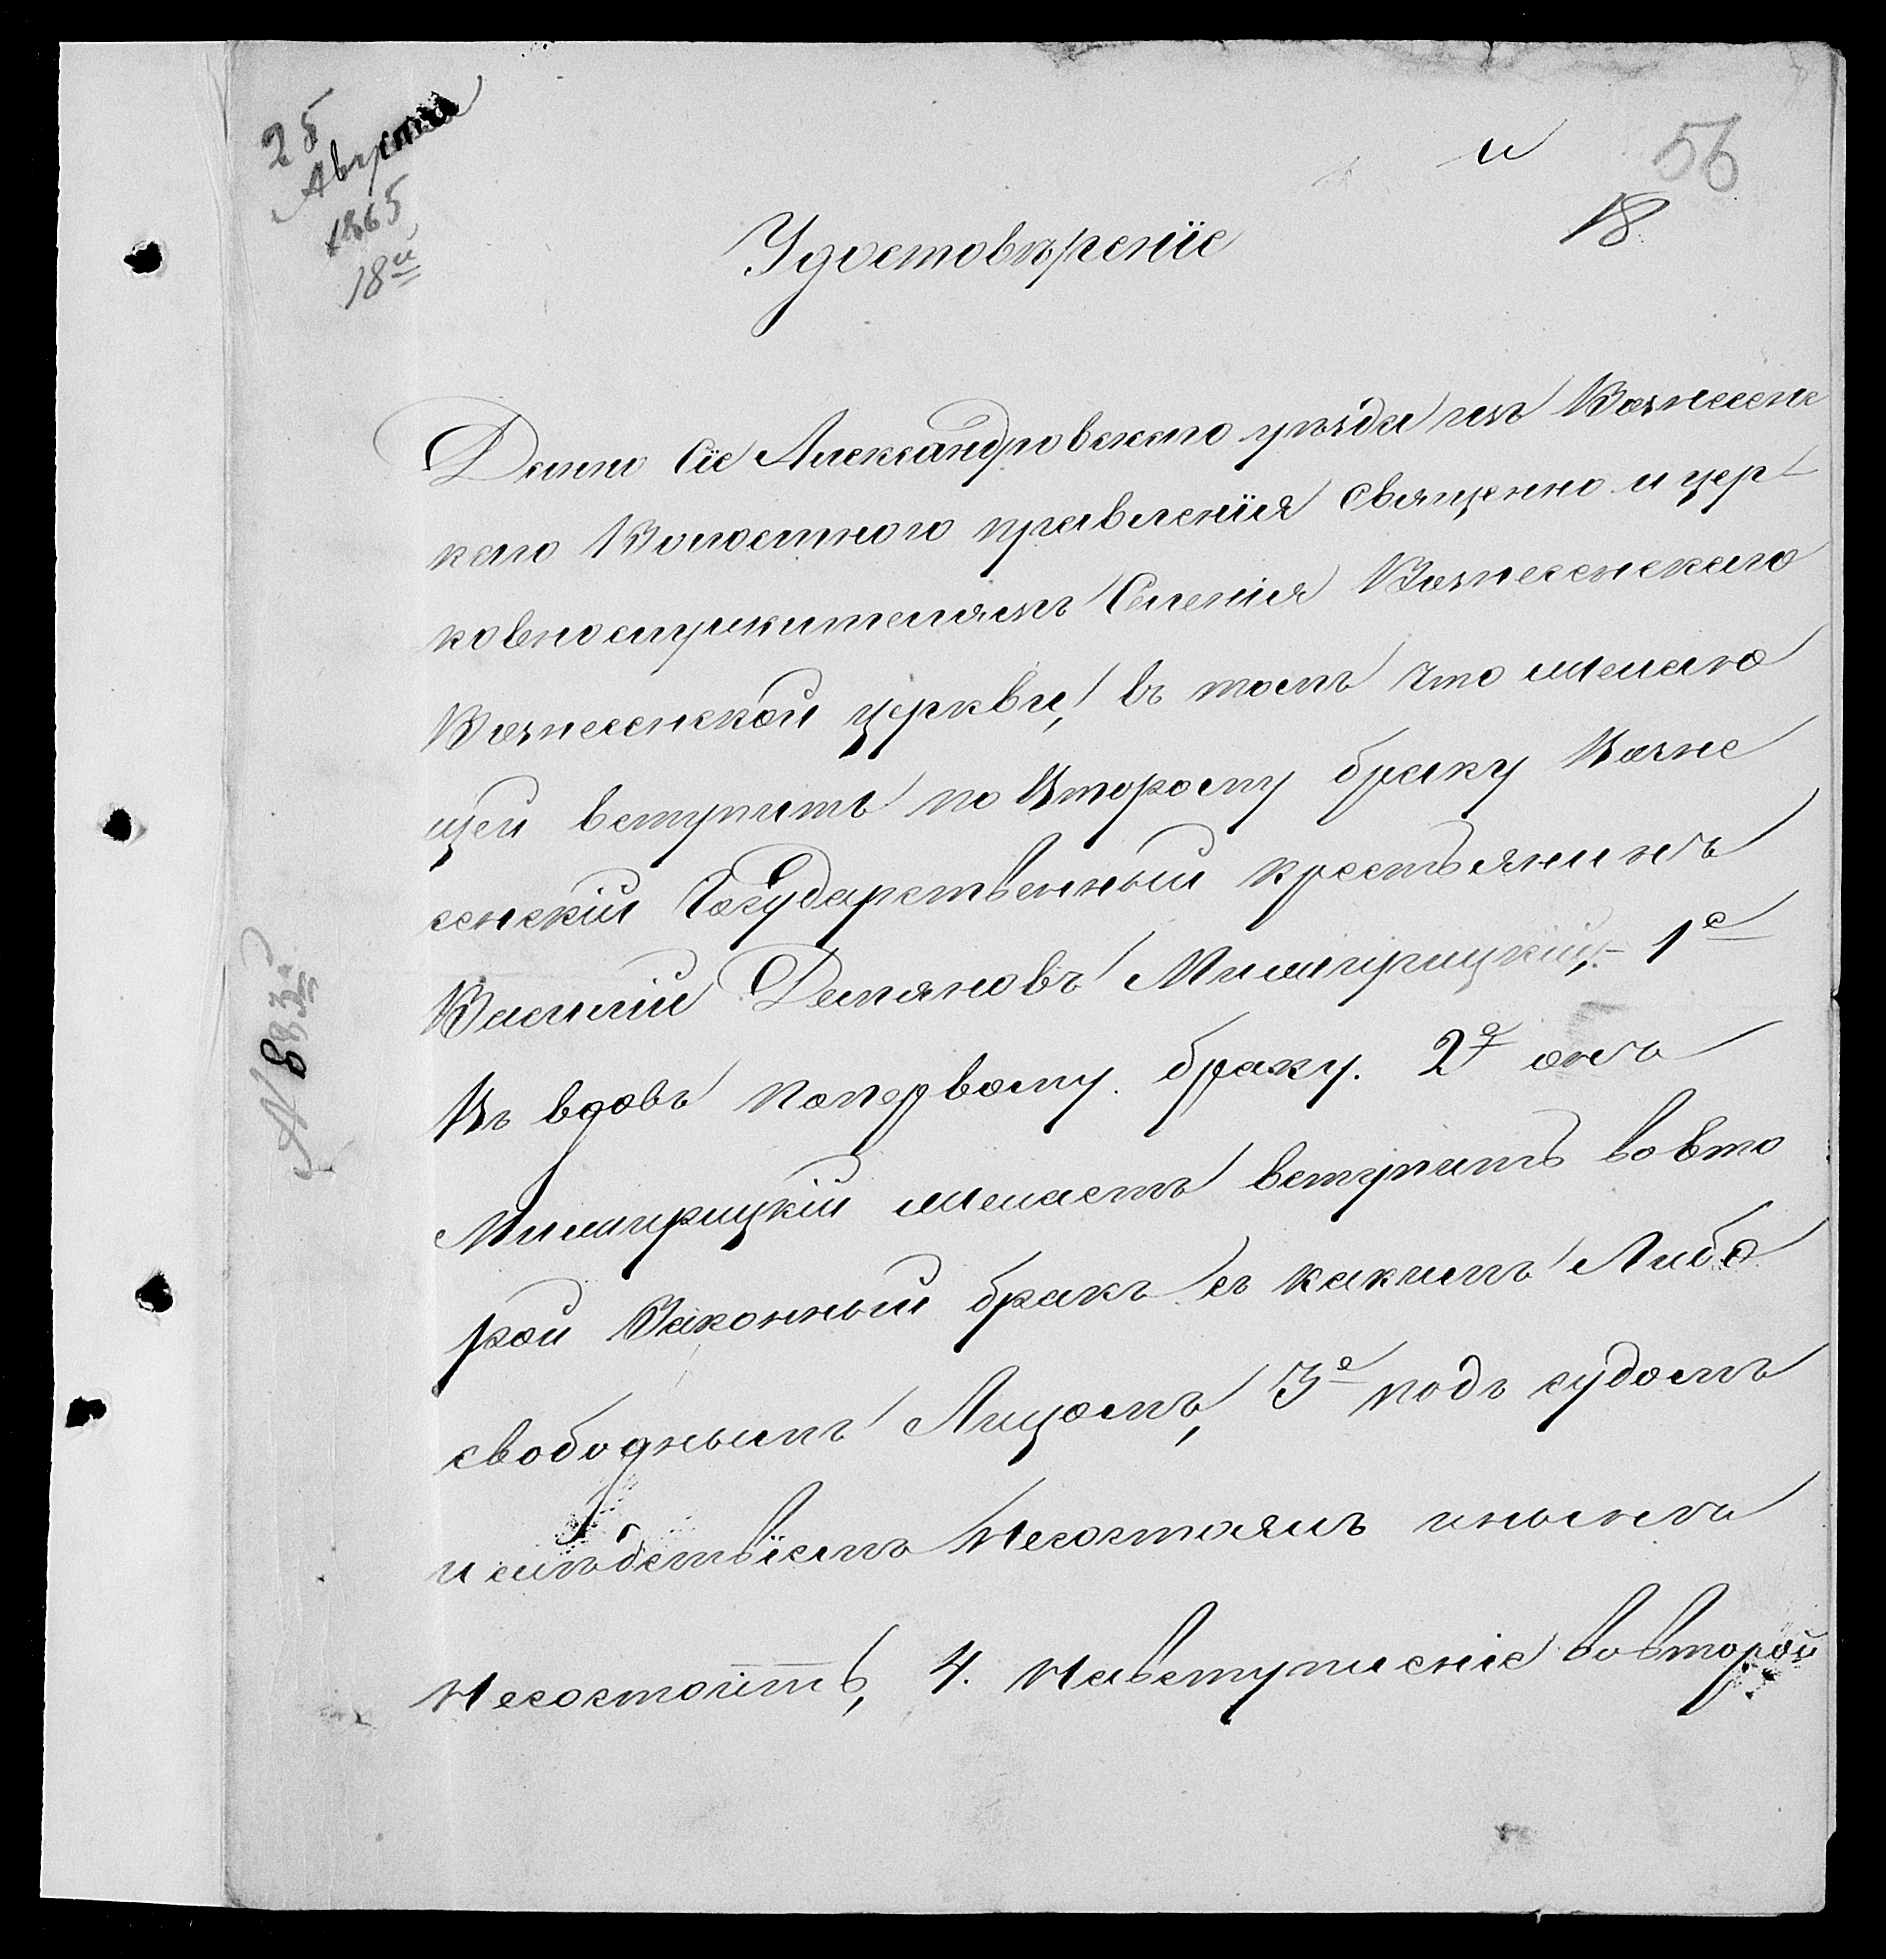 25
Августа
1865
18й
и
56
18
Удостовѣреніе
Дано сіе Александровскаго уѣзда изъ Вознесенс
каго Волостного правленія Священно и цер
ковнослужителямъ Селенія Вознесенскаго
Вознесенской церкви, въ томъ что желаю
щей вступить по Второму браку Возне
сенскій Государственный крестьянинъ
Василій Демяновъ Мишгирицкій, 1е
Въ вдовъ поперѣвому браку. 2е онъ
Мишгирицкій желаетъ вступить во вто
рой Законный бракъ съ какимъ Либо
свободнымъ Лицомъ, 3е подъ судомъ
и слѣдствіемъ Несостоялъ инынѣ
Несостоитъ, 4. Навступленіе во второй
№ 883